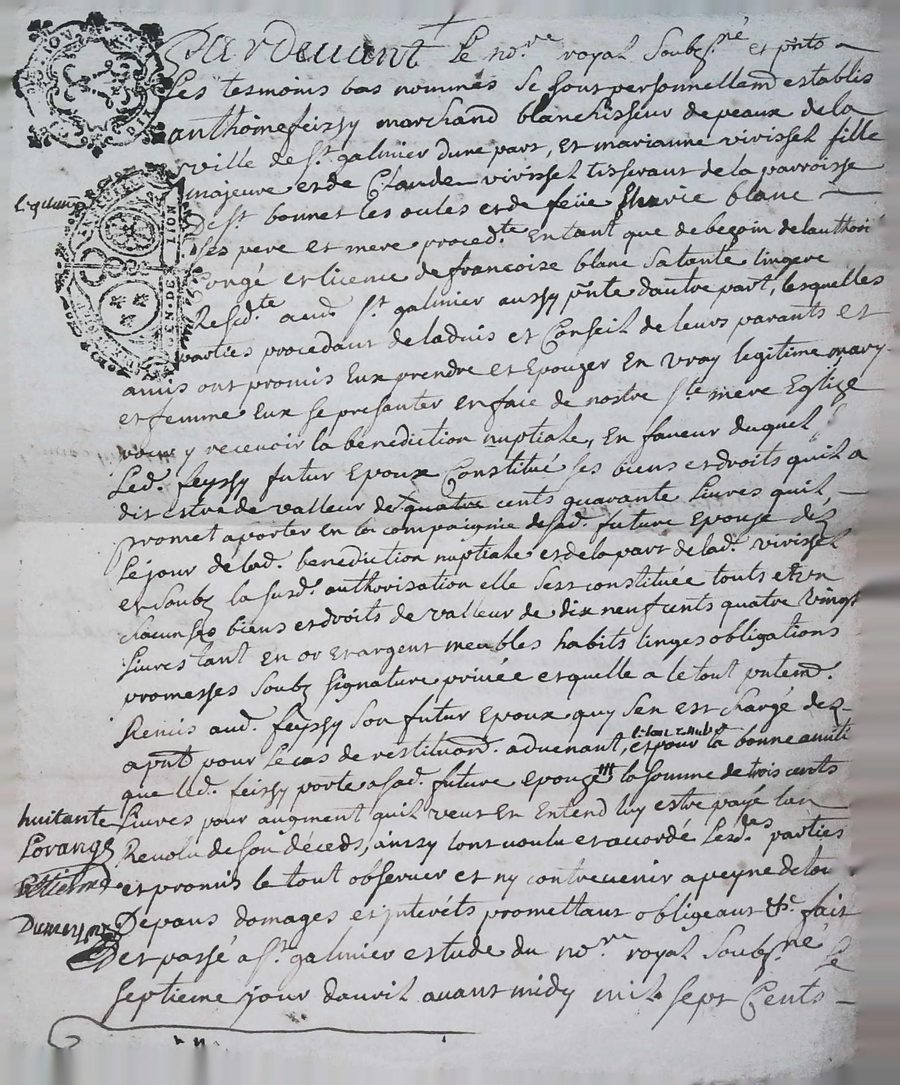 Pardevant Le no.re royal Soubz.né et pnts
Les tesmoins bas nommés Se sont personnellemt establis
anthoine feissy marchand blanchisseur de peaux de la
ville de St galmier dune part, Et marianne vivissel fille
majeure et de Claude vivissel tisserant de la parroisse
de St bonnet les oules et de feüe blanc
Ses pere et mere proced.te Entant que de besoin de lauthori
congé et licence de francoise blanc Sa tante lingere
Resid.te aud. St galmier aussy pnte dautre part, lesquelles
parties procedant de ladvis et Conseil de leurs parants et
amis ont promis Eux prendre et Epouzer En vray legitime mary
et femme Eux se presanter En face de nostre Ste mere Eglize
pour y recevoir la benediction nuptiale, En faveur duquel
Led. feyssy futur Epoux Constitué ses biens et droits quil a
dit estre de valleur de quatre cents quarante Livres quil
promet aporter En la compaignie de sad. future Epouze dez
Le jour de lad. benediction nuptiale et de la part de lad. vivissel
et Soubz la susd. authorisation elle Sest constituée touts et un
chacun Ses biens et droits de valleur de dix neuf cents quatre vingt
Livres tant En or et argent meubles habits linges obligations
promesses Soubz Signature privée et quelle a le tout pntemt.
Remis aud. feyssy Son futur Epoux quy Sen est chargé dez
apnt pour Le cas de restituand. advenant, et pour la bonne amitié
que Led. feissy porte a sad. future epouze la somme de trois cents
Livres pour augment quil veut Et Entend luy estre payé lan
Revolu de son décéds, ainsy lont voulu et accordé Lesd. des parties
et promis le tout observer et ny contrevenir a peyne de tou
Depans domages et interéts promettant obligeant &c. fait
et passé a St. galmier estude du no.re royal Soubz.né Le
Septieme jour davril avant midy mil Sept Cents
huitante
Lorange
Dumeynis
LION
EN·DE